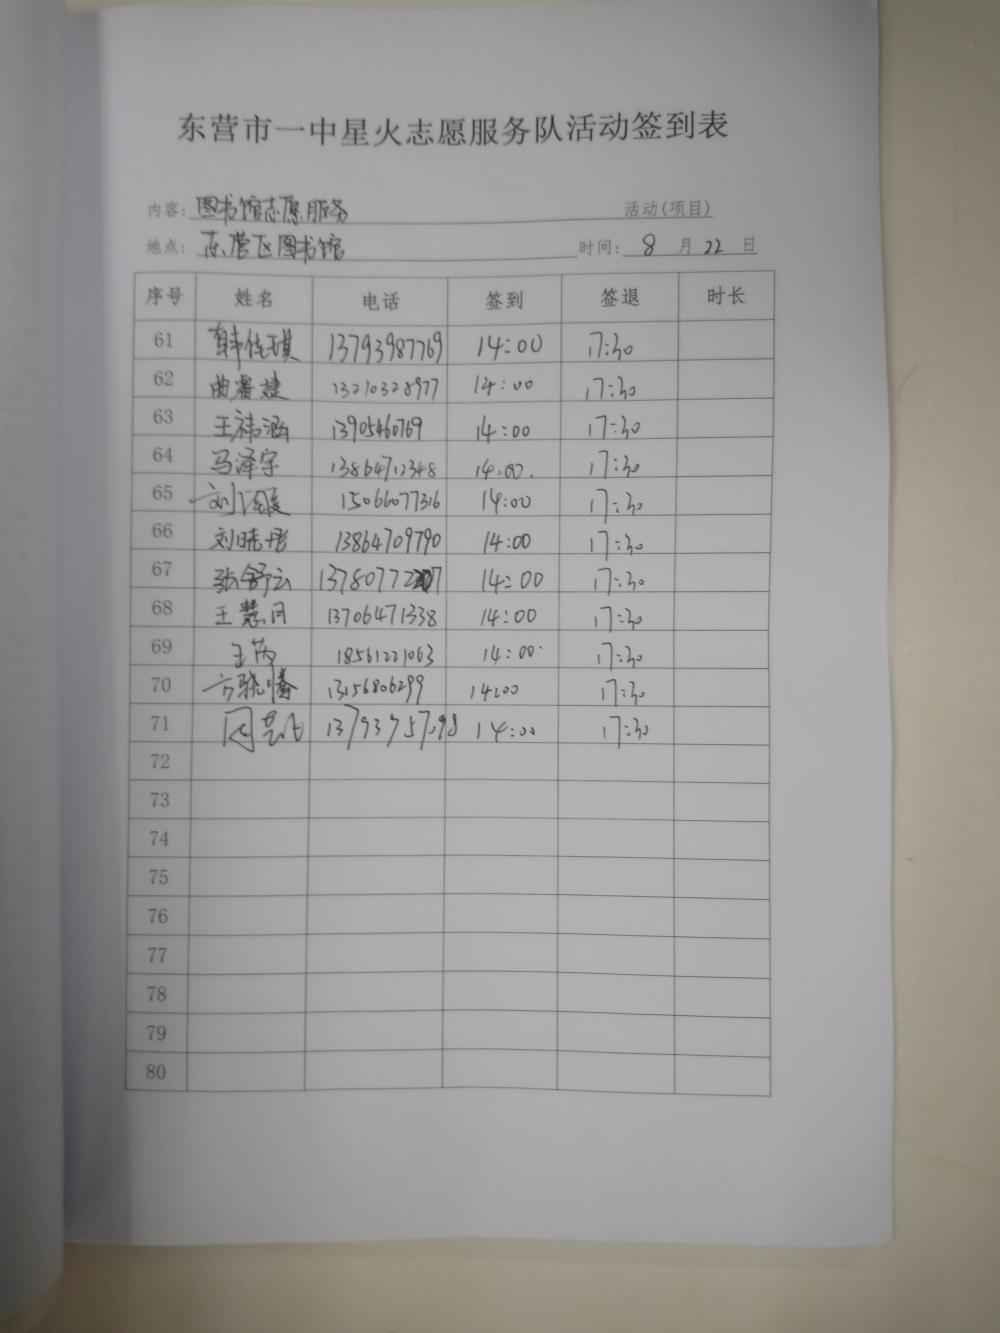 东营市一中星火志愿服务队活动签到表
内容: 图书馆志愿服务 活动(项目)
地点: 东营区图书馆 时间: 8 月 22 日
序号 姓名 电话 签到 签退 时长
61 韩佳琪 13793987769 14:00 17:30
62 曲睿婕 13210328977 14:00 17:30
63 王祎涵 13905460769 14:00 17:30
64 马泽宇 13864712348 14:00. 17:30
65 刘 15066077316 14:00 17:30
66 刘晓彤 13864709790 14:00 17:30
67 张舒云 14:00 17:30
68 王慧月 13706471338 14:00 17:30
69 王芮 18561221063 14:00 17:30
70 方骁 13156806299 14:00 17:30
71 周 14:00 17:30
72
73
74
75
76
77
78
79
80